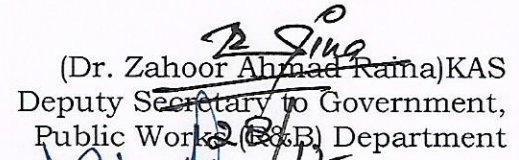 (Dr. Zahoor Ahmad Raina)KAS
Deputy Secretary to Government,
Public Works (R&B) Department